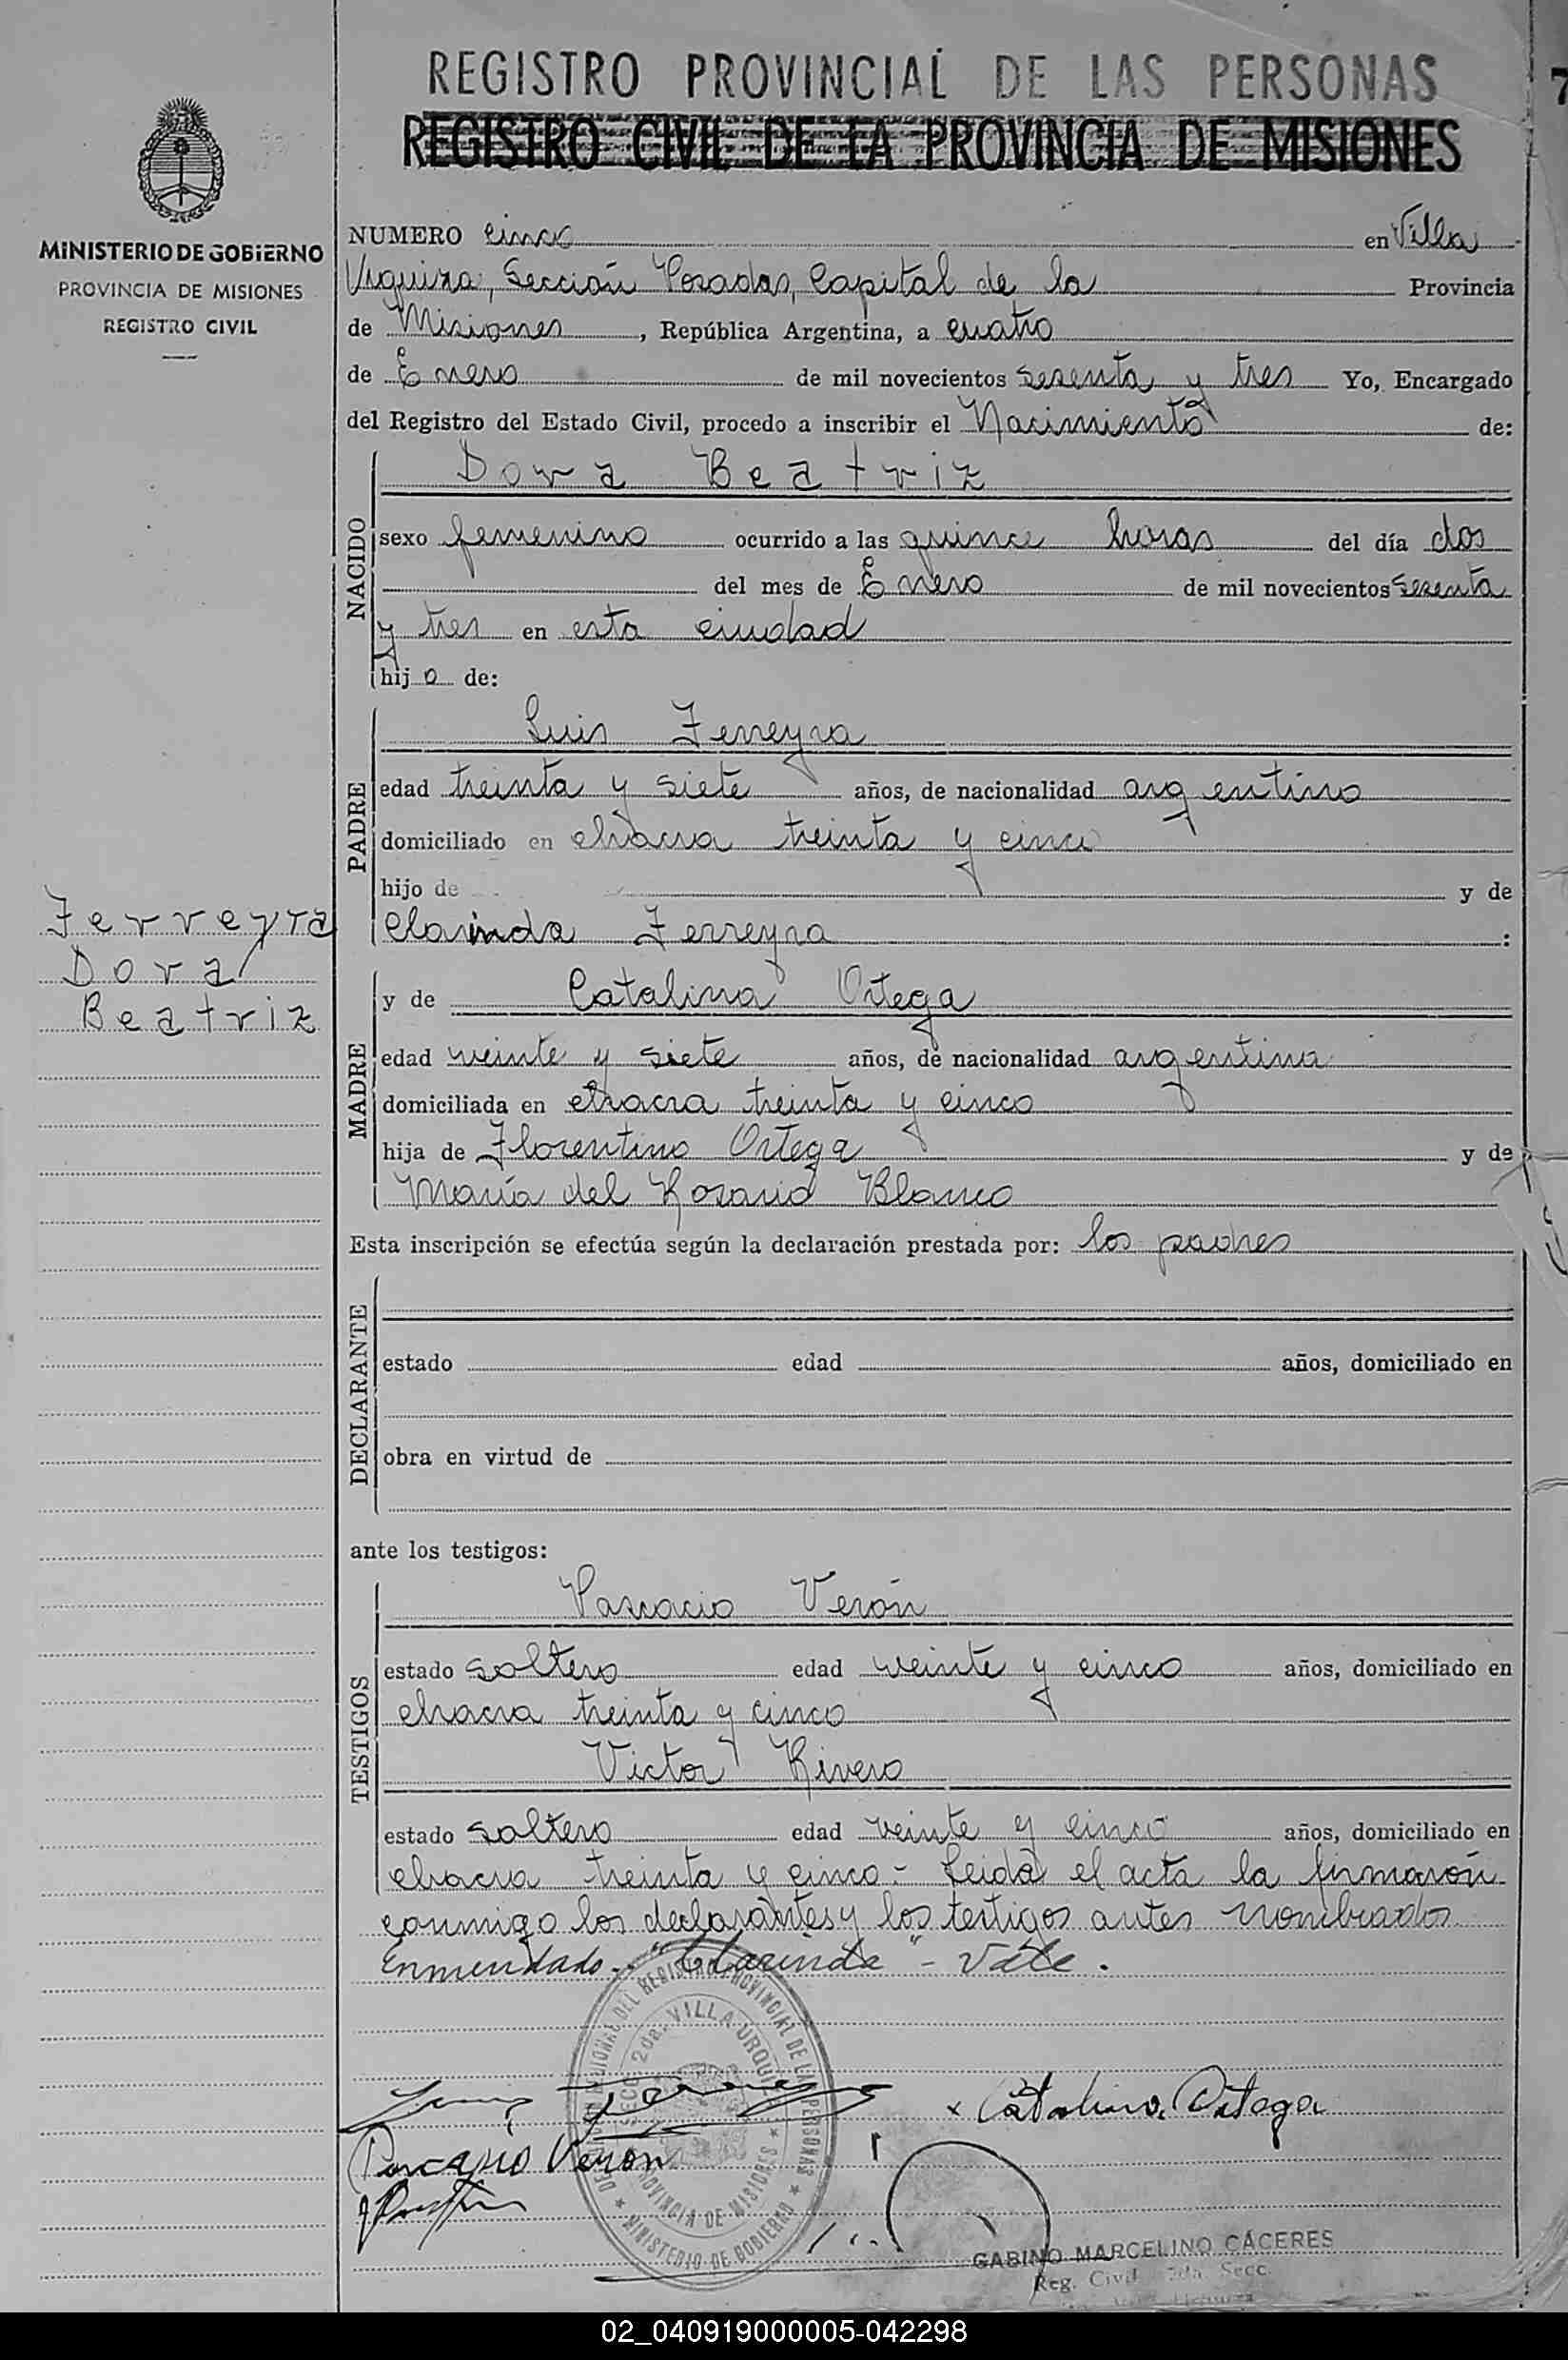 REGISTRO PROVINCIAL DE LAS PERSONAS
7
REGISTRO CIVIL DE LA PROVINCIA DE MISIONES
MINISTERIO DE GOBIERNO
PROVINCIA DE MISIONES
REGISTRO CIVIL
NUMERO cinco en Villa
Urquiza, Sección Posadas, Capital de la Provincia
de Misiones, República Argentina, a cuatro
de Enero de mil novecientos sesenta y tres Yo, Encargado
del Registro del Estado Civil, procedo a inscribir el Nacimiento de:
NACIDO
Dora Beatriz
sexo femenino ocurrido a las quince horas del día dos
del mes de Enero de mil novecientos sesenta
y tres en esta ciudad
hija de:
PADRE
Luis Ferreyra
edad treinta y siete años, de nacionalidad argentino
domiciliado en chacra treinta y cinco
hijo de y de
Clarinda Ferreyra :
Ferreyra
Dora
Beatriz
MADRE
y de Catalina Ortega
edad veinte y siete años, de nacionalidad argentina
domiciliada en chacra treinta y cinco
hija de Florentino Ortega y de
María del Rosario Blanco
Esta inscripción se efectúa según la declaración prestada por: los padres
DECLARANTE
estado edad años, domiciliado en
obra en virtud de
ante los testigos:
TESTIGOS
Pascacio Verón
estado soltero edad veinte y cinco años, domiciliado en
chacra treinta y cinco
Victor Rivero
estado soltero edad veinte y cinco años, domiciliado en
chacra treinta y cinco.- Leida el acta la firmarón
conmigo los declarantes y los testigos antes nombrados
Enmendado.. "Clarinda" - Vale.
DEL REGISTRO PROVINCIAL DE LAS PERSONAS
SECC. 2da. VILLA URQUIZA
PROVINCIA DE MISIONES
MINISTERIO DE GOBIERNO
x Catalina Ortega
Pascasio Verón
GABINO MARCELINO CÁCERES
Reg. Civil 2da. Secc.
02_040919000005-042298